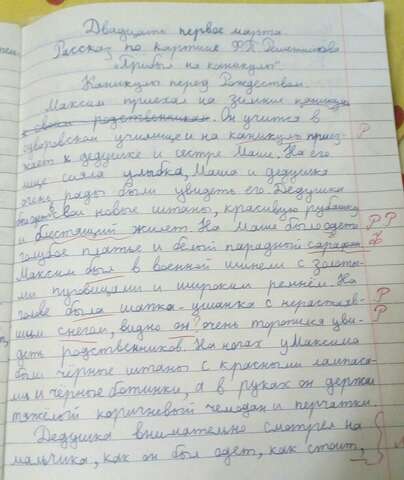 Двадцать первое марта
Рассказ по картине Ф.П. Решетникова
"Прибыл на каникулы".
Каникулы перед Рождеством.
Максим приехал на зимние каникулы
к своим родственникам. Он учится в
суворовском училище и на каникулы приез-
жает к дедушке и сестре Маше. На его
лице сияла улыбка, Маша и дедушка
очень рады были увидеть его. Дедушка
свои новые штаны, красивую рубашку
и блестящий жилет. На Маше было одето
голубое платье и белый парадной сарафан
Максим был в военной шинели с золоты-
ми пуговицами и широким ремнём. На
голове была шапка-ушанка с нерастаяв-
шим снегом, видно он очень торопился уви-
деть родственников. На ногах у Максима
были чёрные штаны с красными лампаса-
ми и чёрные ботинки, а в руках он держал
тяжелый коричневый чемодан и перчатки.
Дедушка внимательно смотрел на
мальчика, как он был одет, как стоит,